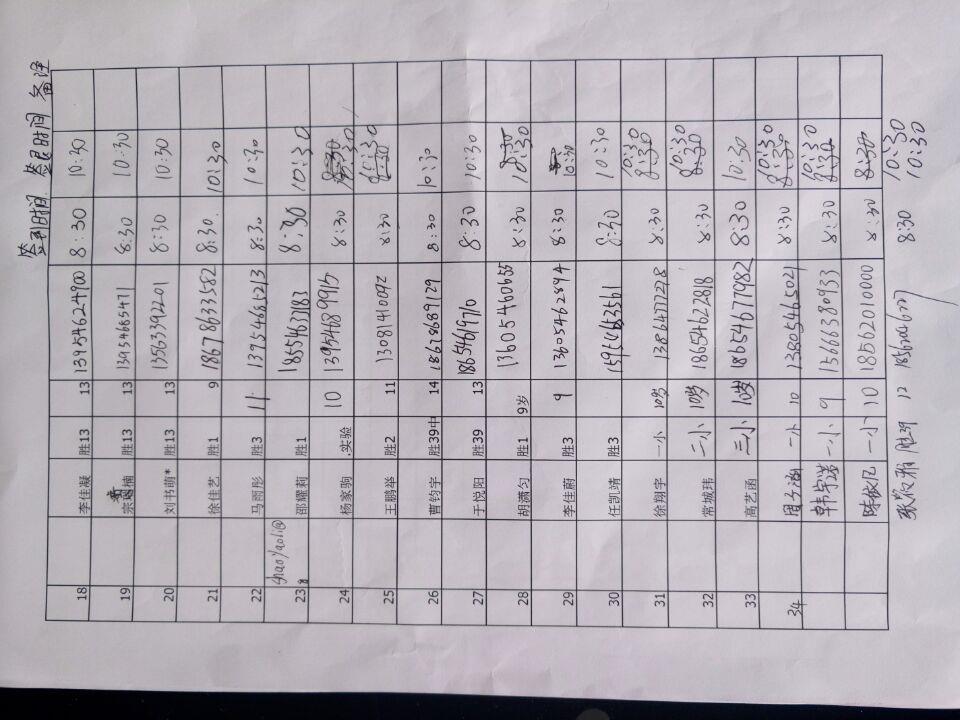 签到时间 签退时间 备注
18 李佳凝 胜13 13 13954624900 8:30 10:30
19 宗 楠 胜13 13 13954685471 8:30 10:30
20 刘书萌* 胜13 13 13563392201 8:30 10:30
21 徐佳艺 胜1 9 18678633582 8:30. 10:30
22 马雨彤 胜3 11 13954665213 8:30 10:30
23 shaoyaoli@ 邵耀莉 胜1 18554637183 8:30 10:30
24 杨家驹 .实验 10 13954689915 8:30 10:30
25 王鹏举 胜2 11 13081410092 8:30 10:30
26 曹钧宇 胜39中 14 18678689129 8:30 10:30
27 于悦阳 胜39 13 1865461970 8:30 10:30
28 胡潇匀 胜1 9岁 13605460655 8:30 10:30
29 李佳蔚 胜3 9 13605462844 8:30 10:30
30 任凯靖 胜3 15954663561 8:30 10:30
31 徐翔宇 一小 10岁 13864777228 8:30 10:30
32 常城玮 二小 10岁 18654622818 8:30 10:30
33 高艺函 三小 10岁 18654677982 8:30 10:30
34 周子涵 一小 10 13805465021 8:30 10:30
一小 9 15666380933 8:30 10:30
一小 10 18562010000 8:30 10:30
胜39 12 18562046727 8:30 10:30